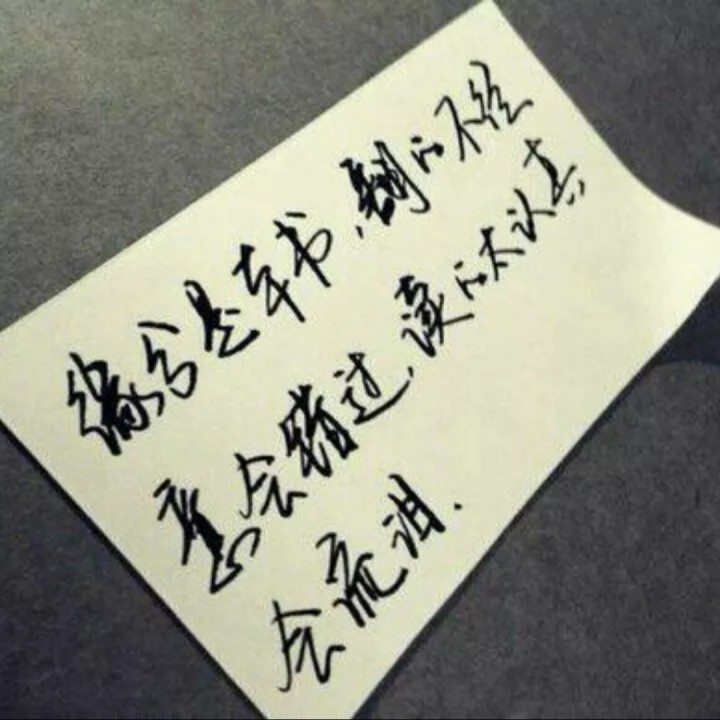 缘分是本书，翻的不经
意会错过，读的太认真
会流泪.